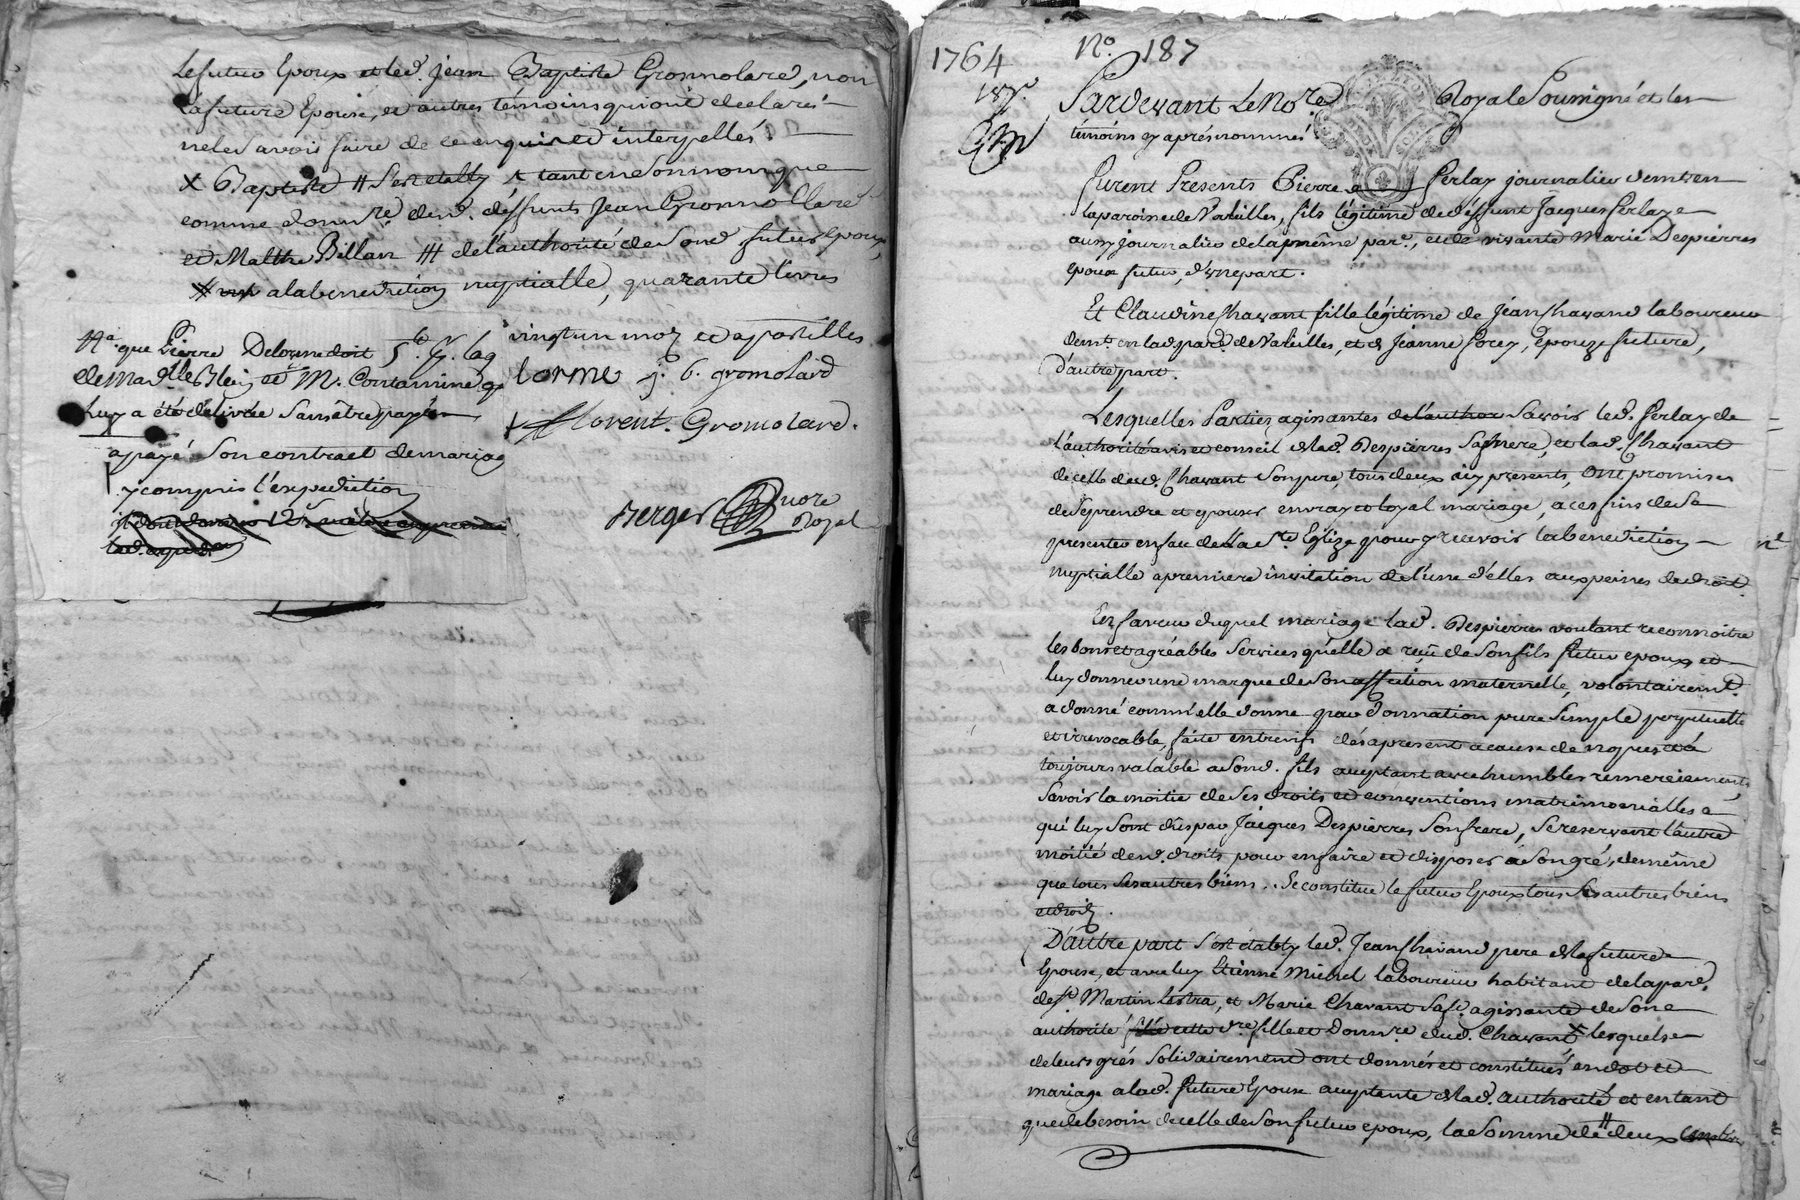 Le futur Epoux et led. Jean Baptiste Gromolard, non
la future Epouse, et autres témoins qui ont declaré
ne le savoir faire de ce enquis et interpellés.
X Baptiste // S'est etably X tant en son nom que
comme donnre. dud. déffunts Jean Gromollard
et Matthe Billan /// de l'authorité de sond. futur epoux,
a la benediction nuptialle, quarante livres
Na. que Pierre Delorme doit
de Made. Blein et M. Contamine qe
luy a été délivrée sans être payée
a payé son contract de mariage
y compris l'expedition
vingt un mots et apostilles
lorme j. b. gromolard
florent. Gromolard.
Berger nore
Royal
1764 No. 187
187.
Pardevant Le Nore. Royal Soussigné et les
témoins cy après nommés
furent Presents Pierre ferlay journalier demt. en
la paroisse de Vareilles, fils légitime de déffunt Jacques ferlay
aussy journalier de la même parse., et de vivante Marie Despierres
epoux futur, d'une part.
Et Claudine Chavant fille légitime de Jean Chavand laboureur
demt. en lad. parse. de Vareilles, et de Jeanne forey, epouze future,
d'autre part.
Lesquelles Parties agissantes de l'author savoir led. ferlay de
l'authorité avis et conseil de lad. Despierres sa mere, et lad. Chavant
de celle dud. Chavant son pere, tous deux icy presents, ont promis
de s'eprendre et epouser en vray et loyal mariage, a ces fins de se
presenter en face de La Ste. Eglize pour y recevoir la benediction
nuptialle a premiere invitation de l'une d'elles aux peines de droit.
En faveur duquel mariage lad. Despierres voulant reconnoitre
les bons et agréables services qu'elle a reçu de son fils futur epoux et
luy donner une marque de son affection maternelle, volontairemt.
a donné comm'elle donne par donnation pure simple perpetuelle
et irrevocable, faite entre vifs dés a present a cause de nopces et a
toujours valable a sond. fils acceptant avec humbles remerciements
Savoir la moitié de ses droits et conventions matrimonialles
qui luy sont dus par Jacques Despierres son frere, se reservant l'autre
moitié desd. droits pour en faire et disposer a son gré, de même
que tous ses autres biens. Se constitue le futur Epoux tous ses autres biens
et droits.
D'autre part s'est étably led. Jean Chavand pere de la future
Epouse, et avec luy Etienne Michel laboureur habitant de la parse.
de St. Martin Lestra, et Marie Chavant sa fe. agissante de son
authorité fille et donnre. dud. Chavant X lesquels
de leurs grés solidairement ont donnés et constitués en dot et
mariage a lad. future Epouse acceptante de lad. authorité et en tant
que de besoin de celle de son futur epoux, la somme de // deux